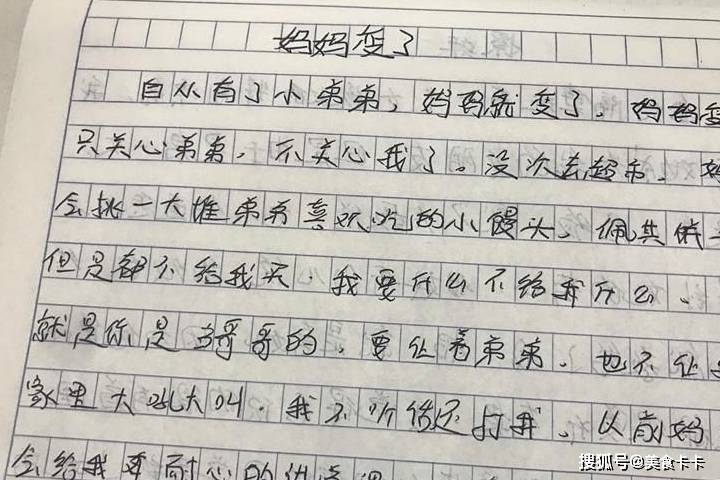 妈妈变了
自从有了小弟弟，妈妈就变了，妈妈变
只关心弟弟，不关心我了。没次去超市，妈
会挑一大堆弟弟喜欢吃的小馒头、佩其
但是都不给我买，我要什么不给我什么、
就是你是当哥哥的，要让着弟弟，也不让
家里大吼大叫，我不听话还打我。以前妈
会给我耐心的
搜狐号@美食卡卡